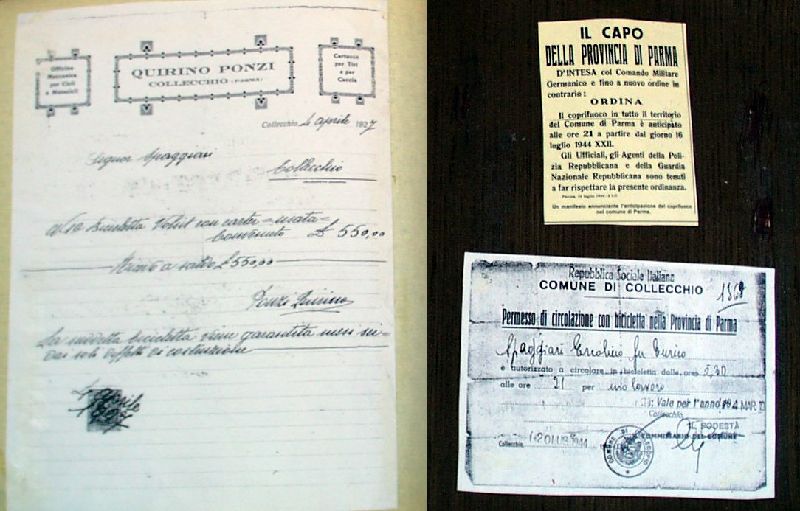 Officina
Meccanica
per Cicli
e Motocicli
QUIRINO PONZI
COLLECCHIO (PARMA)
Cartucce
per Tiri
e per
Caccia
Collecchio, 4 aprile 1937
Signor Spaggiari
Collecchio
N. 10 bicicletta Volsit con
£ 550,00
a saldo £ 550,00
Ponzi Quirino
La suddetta bicicletta viene garantita mesi
di costruzione
IL CAPO
DELLA PROVINCIA DI PARMA
D'INTESA col Comando Militare
Germanico e fino a nuovo ordine in
contrario:
ORDINA
Il coprifuoco in tutto il territorio
del Comune di Parma è anticipato
alle ore 21 a partire dal giorno 16
luglio 1944 XXII.
Gli Ufficiali, gli Agenti della Poli-
zia Repubblicana e della Guardia
Nazionale Repubblicana sono tenuti
a far rispettare la presente ordinanza.
Parma, luglio 1944
Un manifesto annunciante l'anticipazione del coprifuoco
nel comune di Parma.
Repubblica Sociale Italiana
COMUNE DI COLLECCHIO
Permesso di circolazione con bicicletta nella Provincia di Parma
Spaggiari fu
è autorizzato a circolare in bicicletta dalle ore 5,30
alle ore 21 per
Vale per l'anno 194
Collecchio
IL PODESTÀ
COMMISSARIO DEL COMUNE
Collecchio
COMUNE DI COLLECCHIO